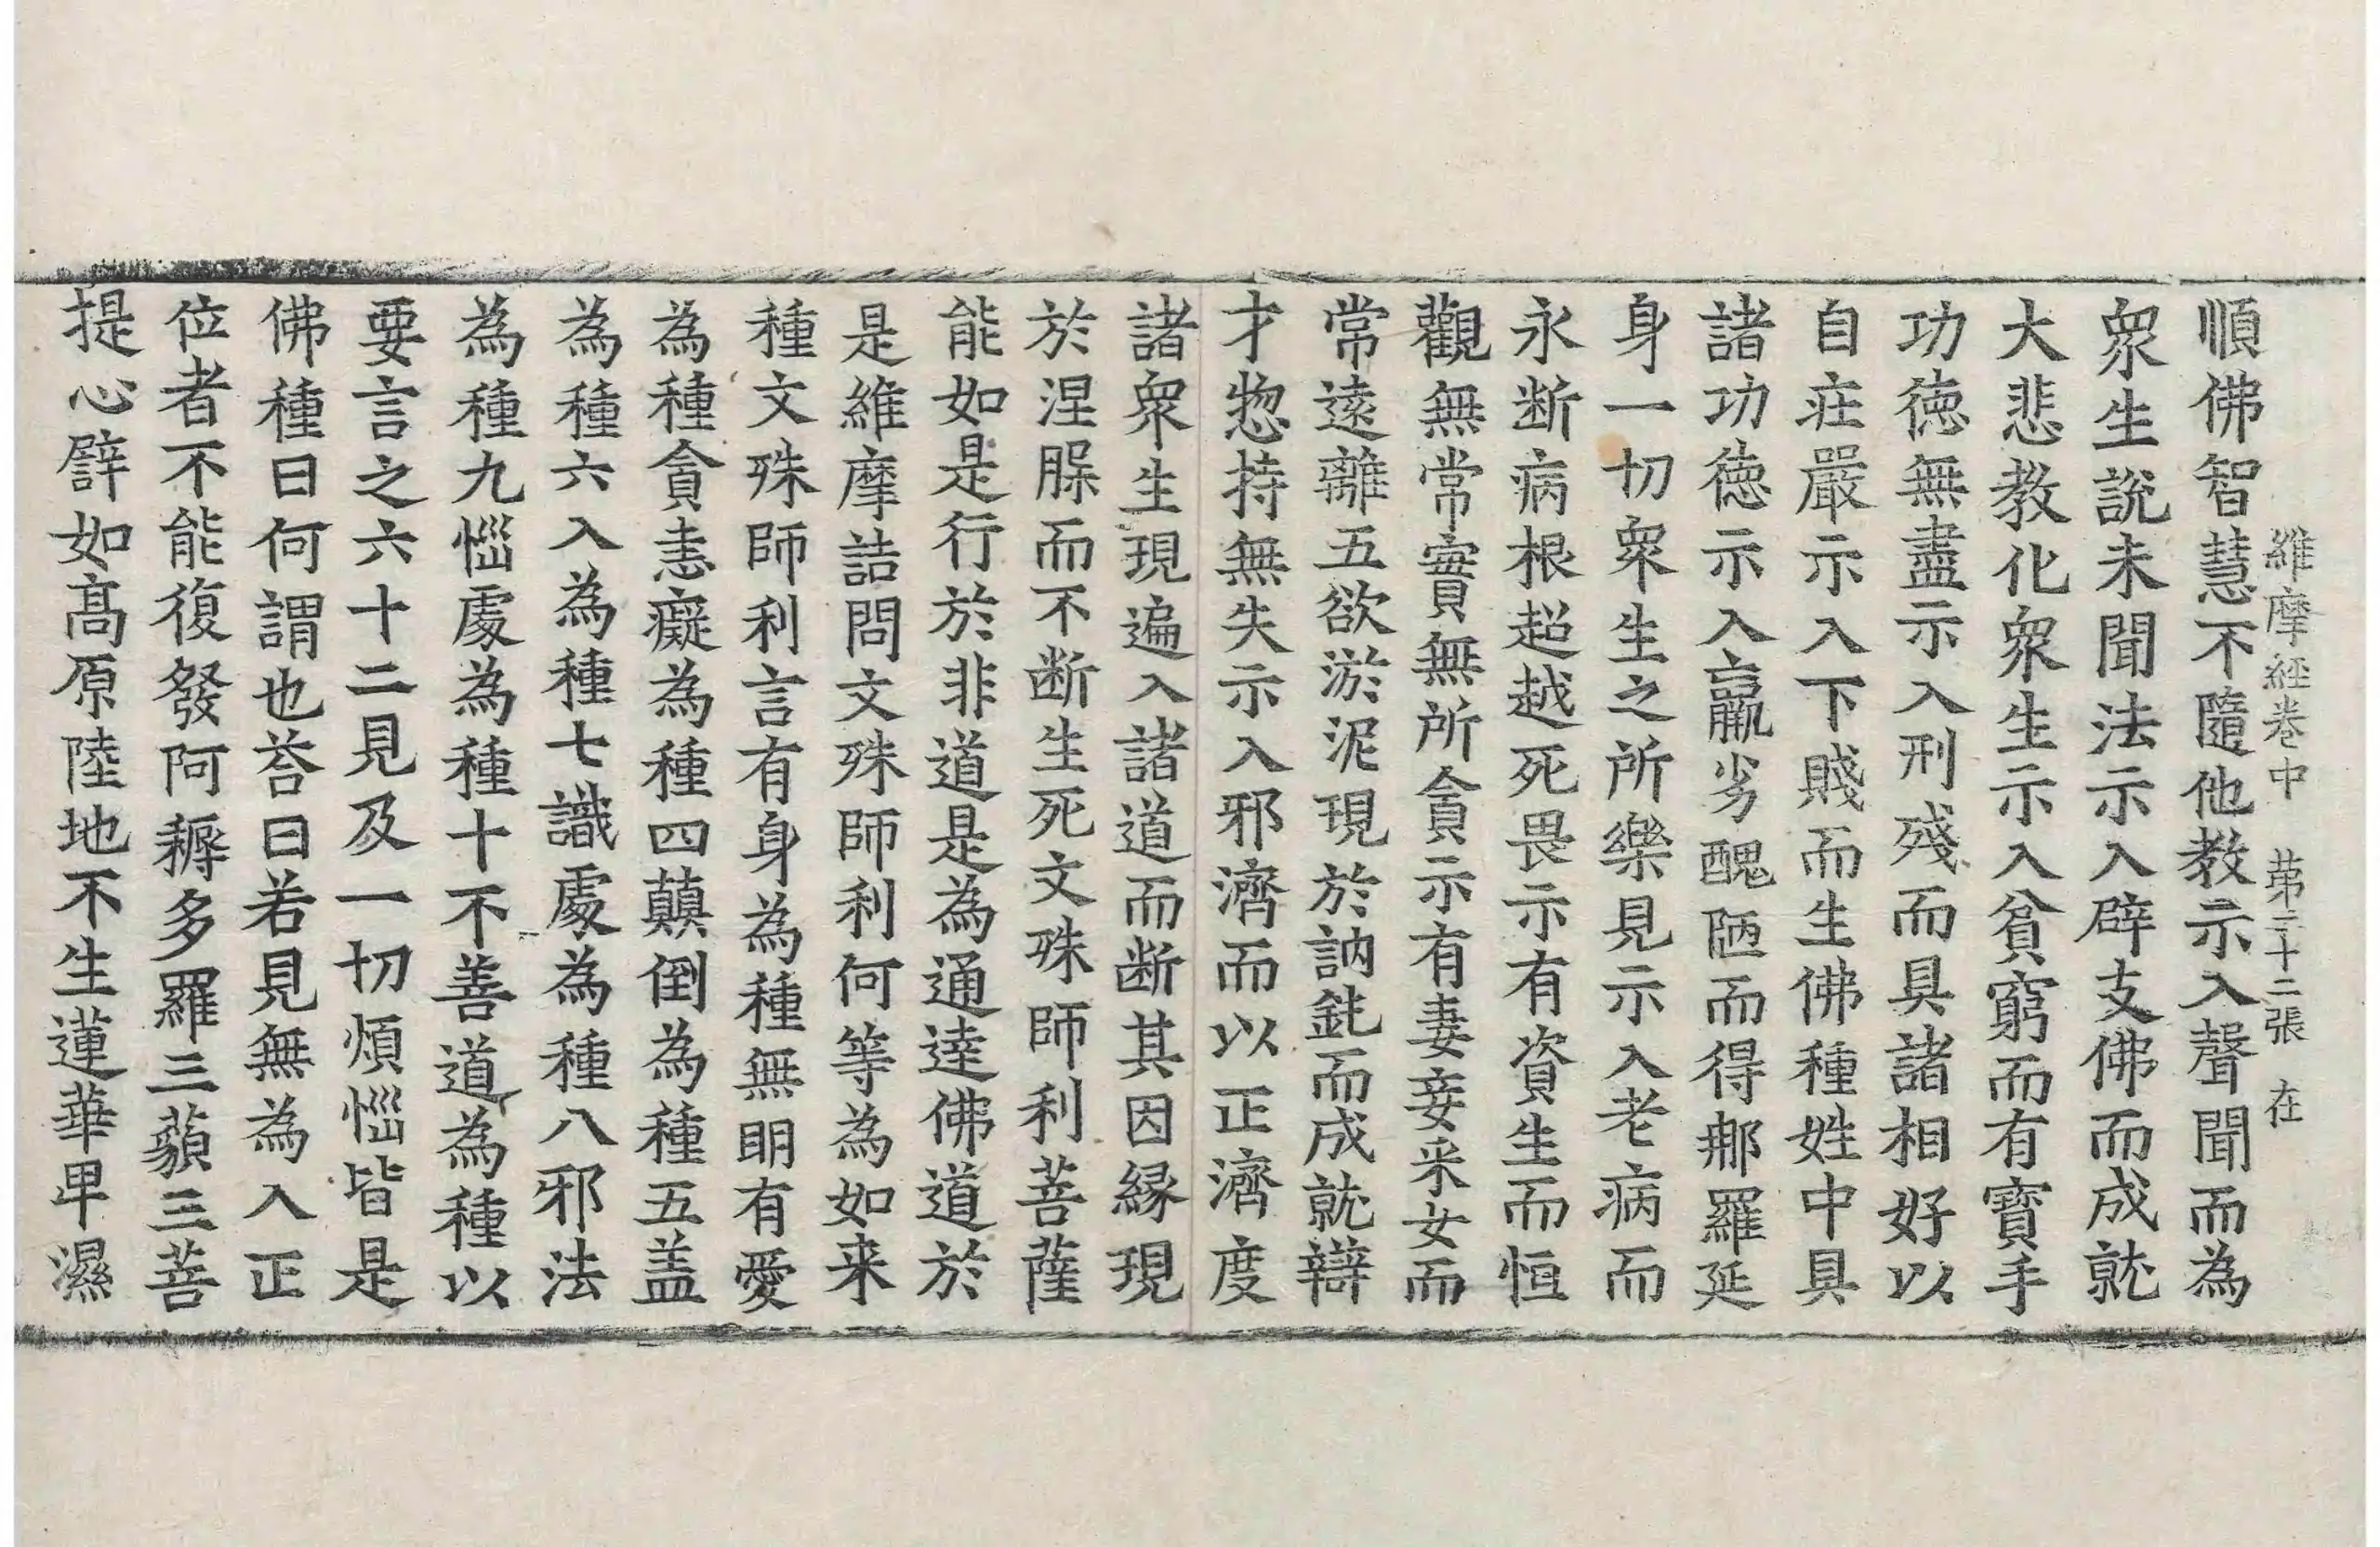 維摩經卷中 苐三十二張 在
順佛智慧不隨他教示入聲聞而為
衆生說未聞法示入辟支佛而成就
大悲教化衆生示入貧窮而有寳手
功徳無盡示入刑殘而具諸相好以
自莊嚴示入下賤而生佛種姓中具
諸功徳示入羸劣醜陋而得那羅延
身一切衆生之所樂見示入老病而
永断病根超越死畏示有資生而恒
觀無常實無所貪示有妻妾采女而
常逺離五欲淤泥現於訥鈍而成就辯
才惣持無失示入邪濟而以正濟度
諸衆生現遍入諸道而断其因縁現
於涅槃而不断生死文殊師利菩薩
能如是行於非道是為通達佛道於
是維摩詰問文殊師利何等為如来
種文殊師利言有身為種無明有愛
為種貪恚癡為種四顛倒為種五盖
為種六入為種七識處為種八邪法
為種九惱處為種十不善道為種以
要言之六十二見及一切煩惱皆是
佛種曰何謂也荅曰若見無為入正
位者不能復發阿耨多羅三藐三菩
提心譬如髙原陸地不生蓮華卑濕